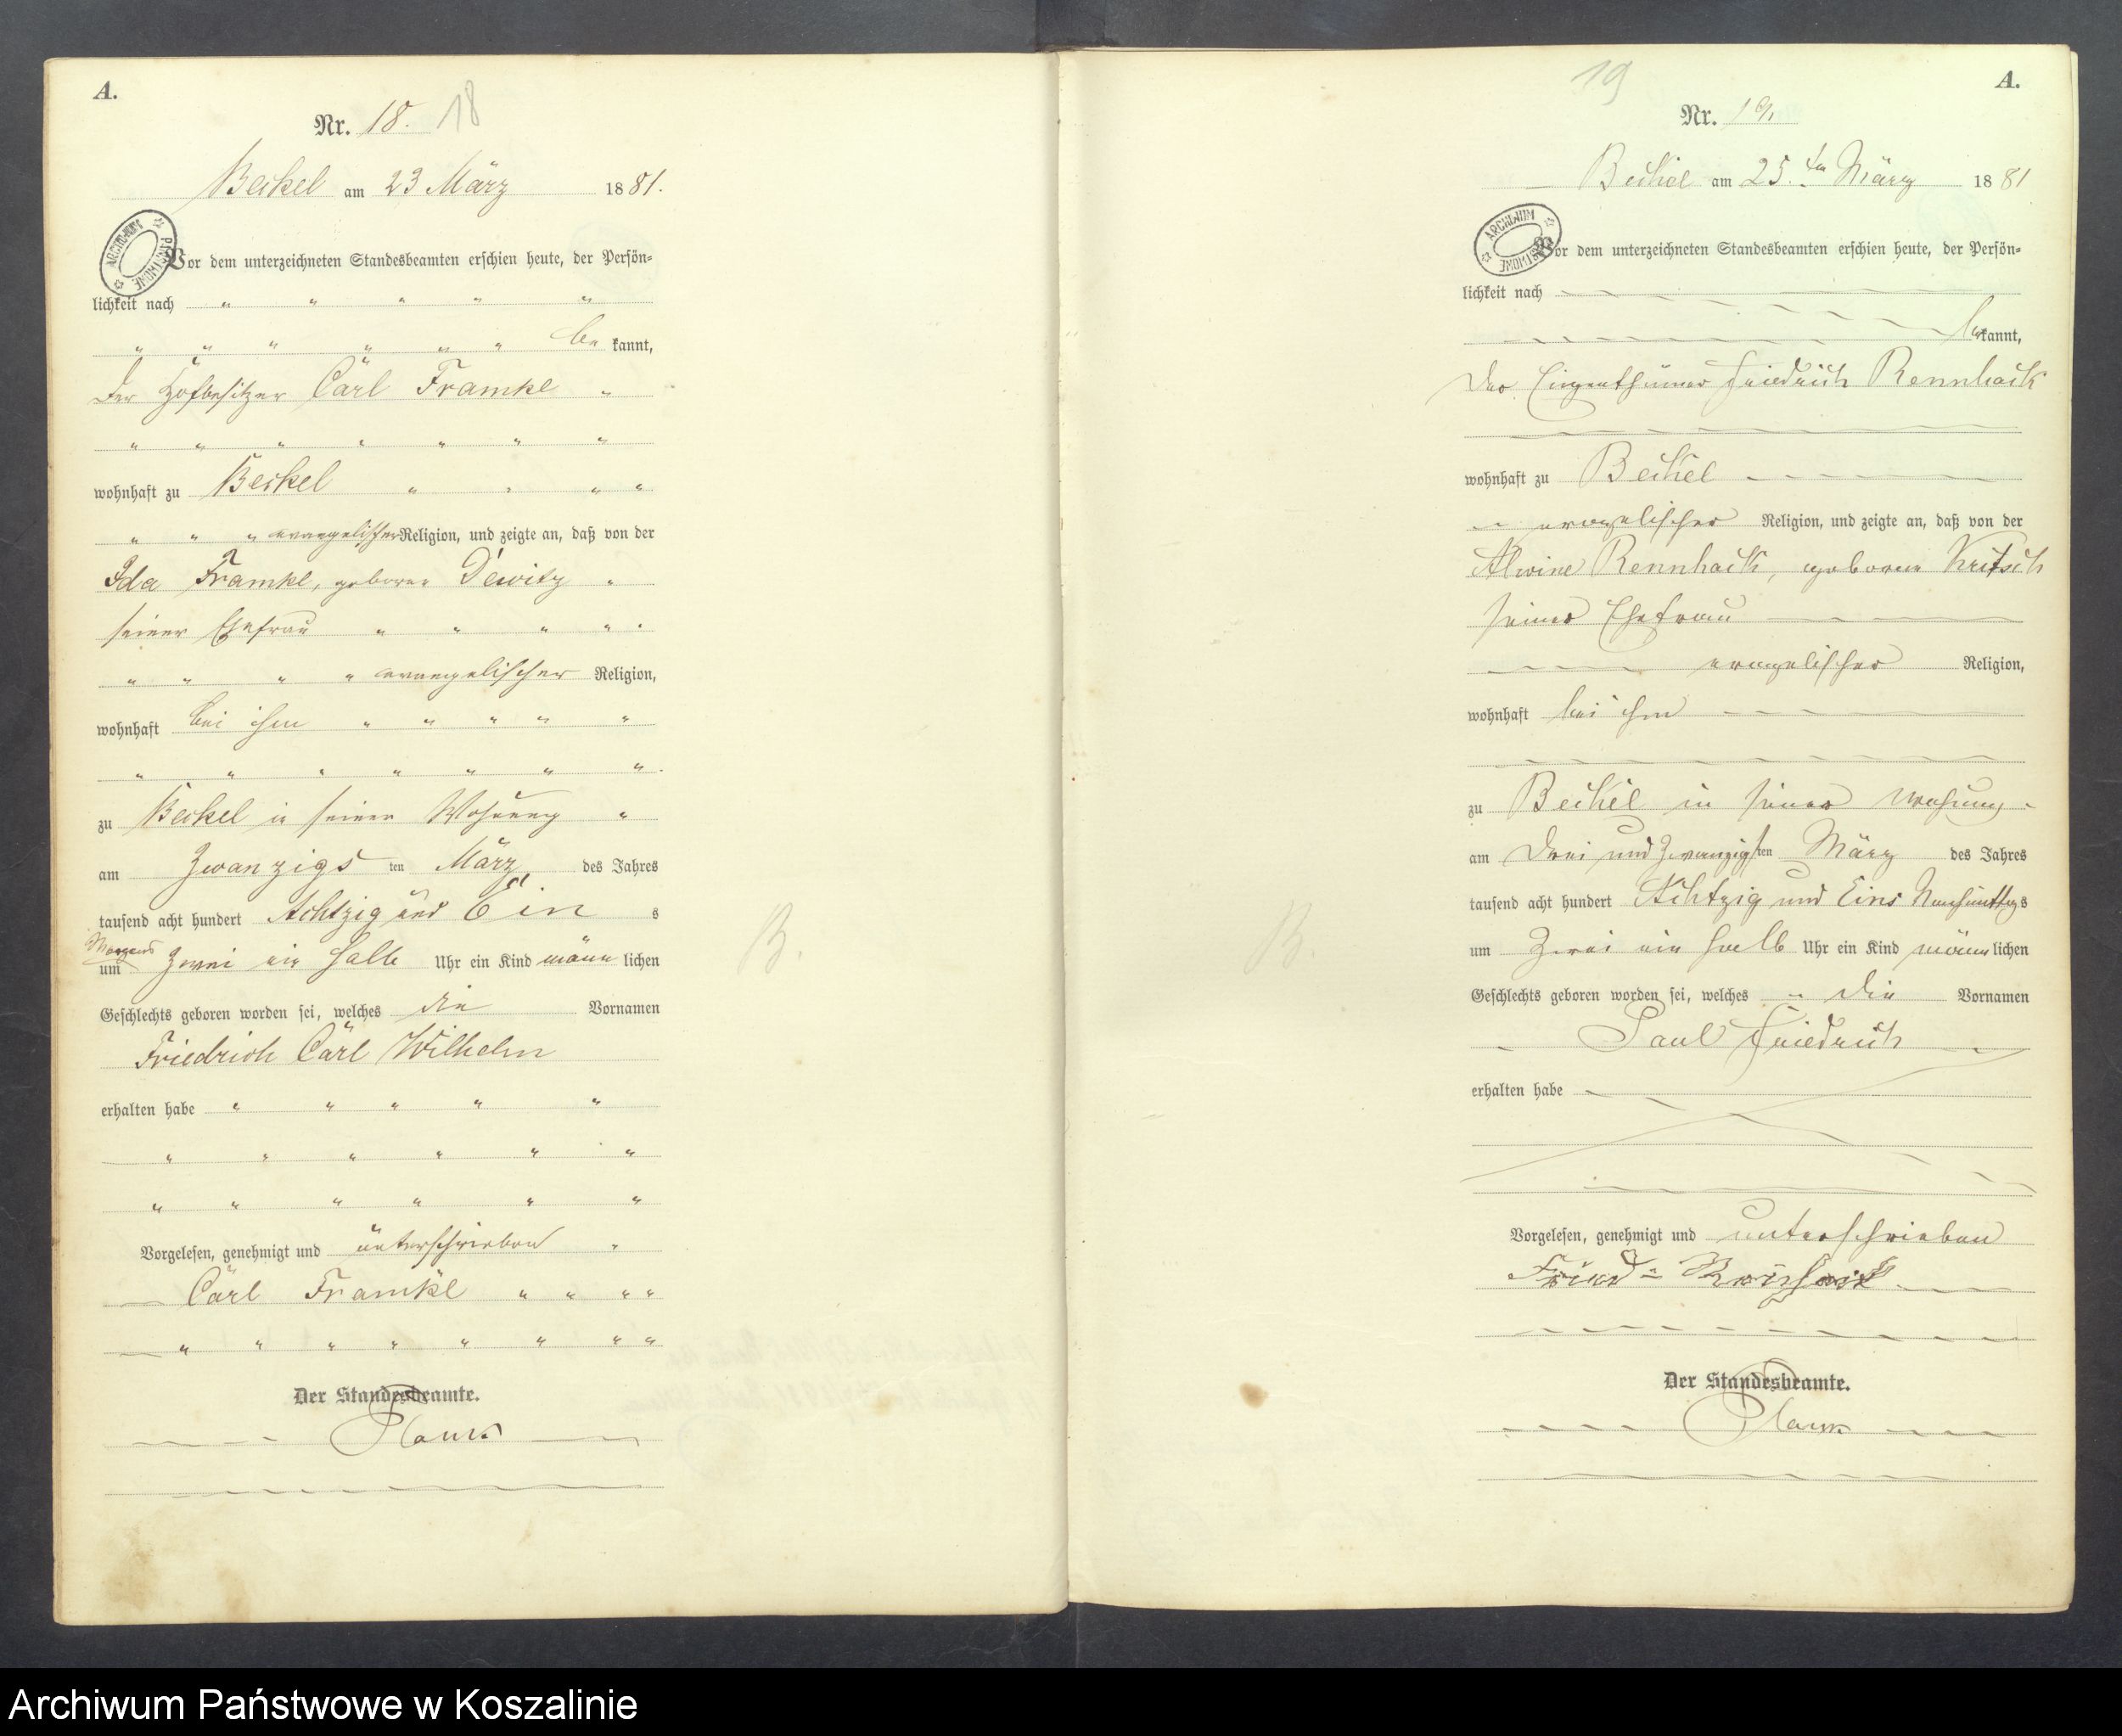 A.
Nr. 18. 18
Beckel am 23 März 1881.
ARCHIWUM PAŃSTWOWE
Vor dem unterzeichneten Standesbeamten erschien heute, der Persön-
lichkeit nach " " " " "
" " " " " " be kannt,
der Hofbesitzer Carl Framke "
" " " " " " "
wohnhaft zu Beckel " " " "
" " " evangelischer Religion, und zeigte an, daß von der
Ida Framke, geboren Dewitz "
seiner Ehefrau " " " " "
" " " " evangelischer Religion,
wohnhaft bei ihm " " " " "
" " " " " " "
zu Beckel in seiner Wohnung "
am Zwanzigs ten März des Jahres
tausend acht hundert Achtzig und Ein s
Morgens
um Zwei ein halb Uhr ein Kind männ lichen
Geschlechts geboren worden sei, welches die Vornamen
Friedrich Carl Wilhelm
erhalten habe " " " " "
" " " " " "
" " " " " "
Vorgelesen, genehmigt und unterschrieben "
Carl Framke " " " "
" " " " " " " "
Der Standesbeamte.
B.
19
A.
Nr. 19
Beckel am 25.ten März 1881
ARCHIWUM PAŃSTWOWE
Vor dem unterzeichneten Standesbeamten erschien heute, der Persön-
lichkeit nach
bekannt,
der Eigenthümer Friedrich Rennhack
wohnhaft zu Beckel
evangelischer Religion, und zeigte an, daß von der
Alwine Rennhack, geborene Kritsch
seiner Ehefrau
evangelischer Religion,
wohnhaft bei ihm
zu Beckel in seiner Wohnung
am Drei und Zwanzigsten März des Jahres
tausend acht hundert Achtzig und Eins Nachmittags
um Zwei ein halb Uhr ein Kind männlichen
Geschlechts geboren worden sei, welches die Vornamen
Paul Friedrich
erhalten habe
Vorgelesen, genehmigt und unterschrieben
Der Standesbeamte.
B.
Archiwum Państwowe w Koszalinie